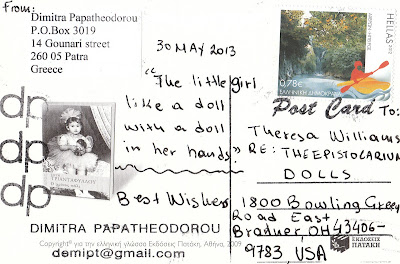 From:
Dimitra Papatheodorou
P.O.Box 3019
14 Gounari street
260 05 Patra
Greece
30 MAY 2013
"The little girl
like a doll
with a doll
in her hands"
Best Wishes
dp
dp
dp
DIMITRA PAPATHEODOROU
Copyright© για την ελληνική γλώσσα Εκδόσεις Πατάκη, Αθήνα, 2009
demipt@gmail.com
HELLAS
0,78€
ΕΛΛΗΝΙΚΗ ΔΗΜΟΚΡΑΤΙΑ
Post Card To:
Theresa Williams
RE: THE EPISTOLARIUM
DOLLS
1800 Bowling Green
Road East
Bradner, OH 43406-
9783, USA
ΕΚΔΟΣΕΙΣ
ΠΑΤΑΚΗ